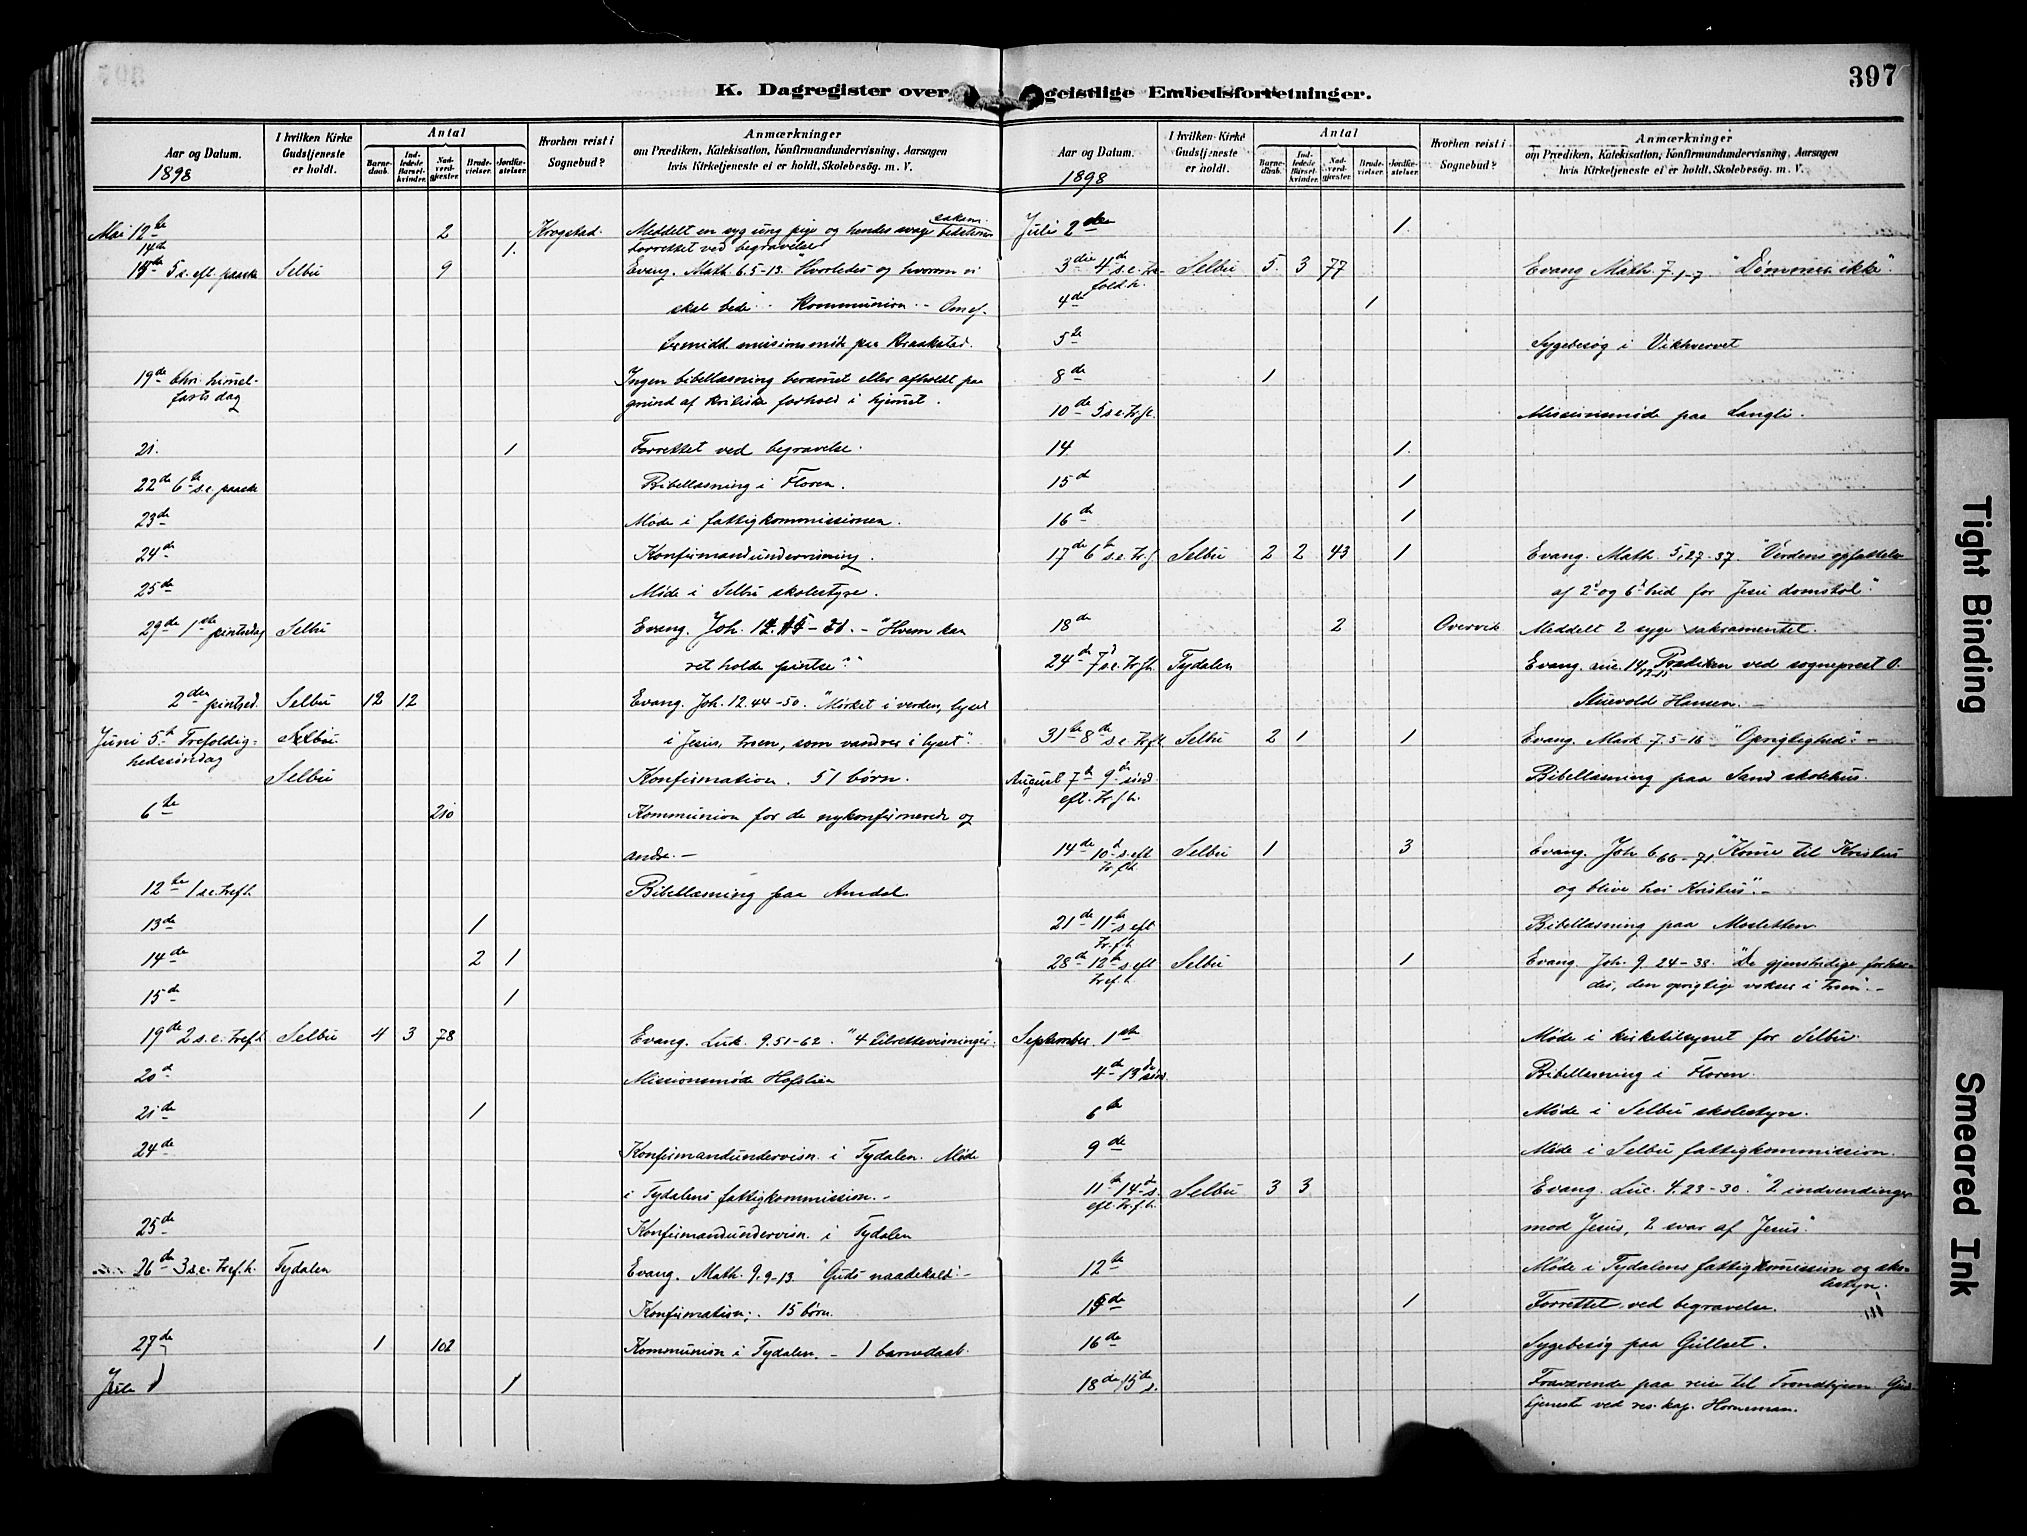 397
K. Dagregister over geistlige Embedsforretninger.
Aar og Datum.
1898
I hvilken Kirke Gudstjeneste er holdt.
Antal
Barnedaab.
Indledede Barselkvinder.
Nadverdgjester.
Brudevielser.
Jordfæstelser.
Hvorhen reist i Sognebud?
Anmærkninger
om Prædiken, Katekisation, Konfirmandundervisning, Aarsagen
hvis Kirketjeneste ei er holdt, Skolebesøg. m. V.
Mai 12te 2 Krogstad. Meddelt en syg ung pige og hendes svage
14de 1. Forrettet ved begravelse
15de 5 s. eft. paaske Selbu 9 Evang. Math. 6.5-13. "Hvorledes og hvorom vi
skal bede". Kommunion. -
19de Chr. himel- Ingen bibellæsning berammet eller afholdt paa
fartsdag grund af kritiske forhold i hjemet.
21. 1 Forrettet ved begravelse.
22de 6te s.e. paaske Bibellæsning i Floren.
23de Møde i fattigkommissionen.
24de Konfirmandundervisning.
25de Møde i Selbu skolestyre.
29de 1ste pintsdag Selbu Evang. Joh. 14. 15-21. - "Hvem kan
ret holde pintse?"
2den pintsed. Selbu 12 12 Evang. Joh. 12.44-50. "Mørket i verden, lyset
Juni 5te Trefoldig- Selbu i Jesus, troen, som vandrer i lyset".
hedssøndag
Selbu Konfirmation. 51 børn.
6te 210 Kommunion for de nykonfirmerede og
andre. -
12te 1 s.e. tref.h. Bibellæsning paa Amdal.
13de 1
14de 2 1
15de 1
19de 2 s.e. tref.h. Selbu 4 3 78 Evang. Luk. 9.51-62. "4 tilrettevisninger.
20d Missionsmøde Hofslien
21de 1
24de Konfirmandundervisn. i Tydalen. Møde
i Tydalens fattigkommission. -
25de Konfirmandundervisn. i Tydalen
26de 3 s.e. tref.h. Tydalen Evang. Math. 9.9-13. "Guds naadekald". -
Konfirmation; 15 børn.
27de 1 102 Kommunion i Tydalen. - 1 barnedaab.
1
Aar og Datum.
1898
I hvilken Kirke Gudstjeneste er holdt.
Antal
Barnedaab.
Indledede Barselkvinder.
Nadverdgjester.
Brudevielser.
Jordfæstelser.
Hvorhen reist i Sognebud?
Anmærkninger
om Prædiken, Katekisation, Konfirmandundervisning, Aarsagen
hvis Kirketjeneste ei er holdt, Skolebesøg. m. V.
Juli 2den 1.
3die 4de s.e. tre- Selbu 5. 3 77 Evang Math. 7.1-7 "Dømmer ikke".
fold.h.
4de 1
5te Sygebesøg i Vikhvervet
8de 1
10de 5 s.e. tr.f. Missionsmøde paa Langli.
14 1.
15d 1
16de 1
17de 6te s.e. tr.f. Selbu 2 2 43 1 Evang. Math. 5,27-37. "Verdens opfattelse
af 2d og 6d bud for Jesu domstol".
18de 2 Overvik Meddelt 2 syge sakramentet.
24de 7d s.e. tr.f.h. Tydalen Evang. Luc. 14,12-15 Prædiken ved sogneprest O.
Stuevold Hansen. -
31te 8de s.e. tr.f. Selbu 2 1 1 Evang. Mark. 7.5-16 "Oprigtighed". -
August 7de 9de sønd Bibellæsning paa Sand skolehus.
eft. tr.f.h.
14de 10d s. eft Selbu 1 3 Evang. Joh 6 66-71 "Komme til Kristus
tr.f.h. og blive hos Kristus". -
21de 11te s eft Bibellæsning paa Mosletten
tr.f.h.
28de 12te s. eft Selbu 1 Evang. Joh. 9. 24-38. "De gjenstridige forhær-
tref.h. des, den oprigtige vokser i troen". -
September. 1ste Møde i kirketilsynet for Selbu.
4de 13de sønd. Bibellæsning i Floren.
6te Møde i Selbu skolestyre.
9de Møde i Selbu fattigkommission.
11te 14de s. Selbu 3 3 Evang. Luc. 4.23-30. "2 indvendinger
eft. tr.f.h. mod Jesus, 2 svar af Jesus".
12te Møde i Tydalens fattigkomission og sko-
lestyre.
15de 1 Forrettet ved begravelse.
16de Sygebesøg paa Gullset.
18de 15de s. Fraværende paa reise til Trondhjem Gud-
tjeneste ved res. kap. Horneman.
Tight Binding
Smeared Ink